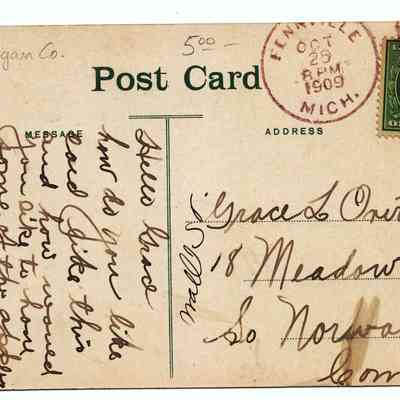 gan Co.
5.00 –
FENNVILLE
OCT
29
8 PM
1909
MICH.
Post Card
MESSAGE
ADDRESS
Hello Grace
how do you like
card I like this
and how would
you like to have
some of the apples
Grace L
18 Meadow
So Norwa
Con